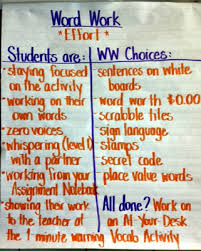 Word Work
*Effort*
Students are:
-staying focused
on the activity
-working on their
own words
-zero voices
-whispering (level 1)
with a partner
-working from your
Assignment Notebook
-showing their work
to the teacher at
the 1 minute warning
WW Choices:
-sentences on white
boards
-word worth $0.00
-scrabble tiles
-sign language
-stamps
-secret code
-place value words
All done? Work on
an M-Your-Desk
Vocab Activity